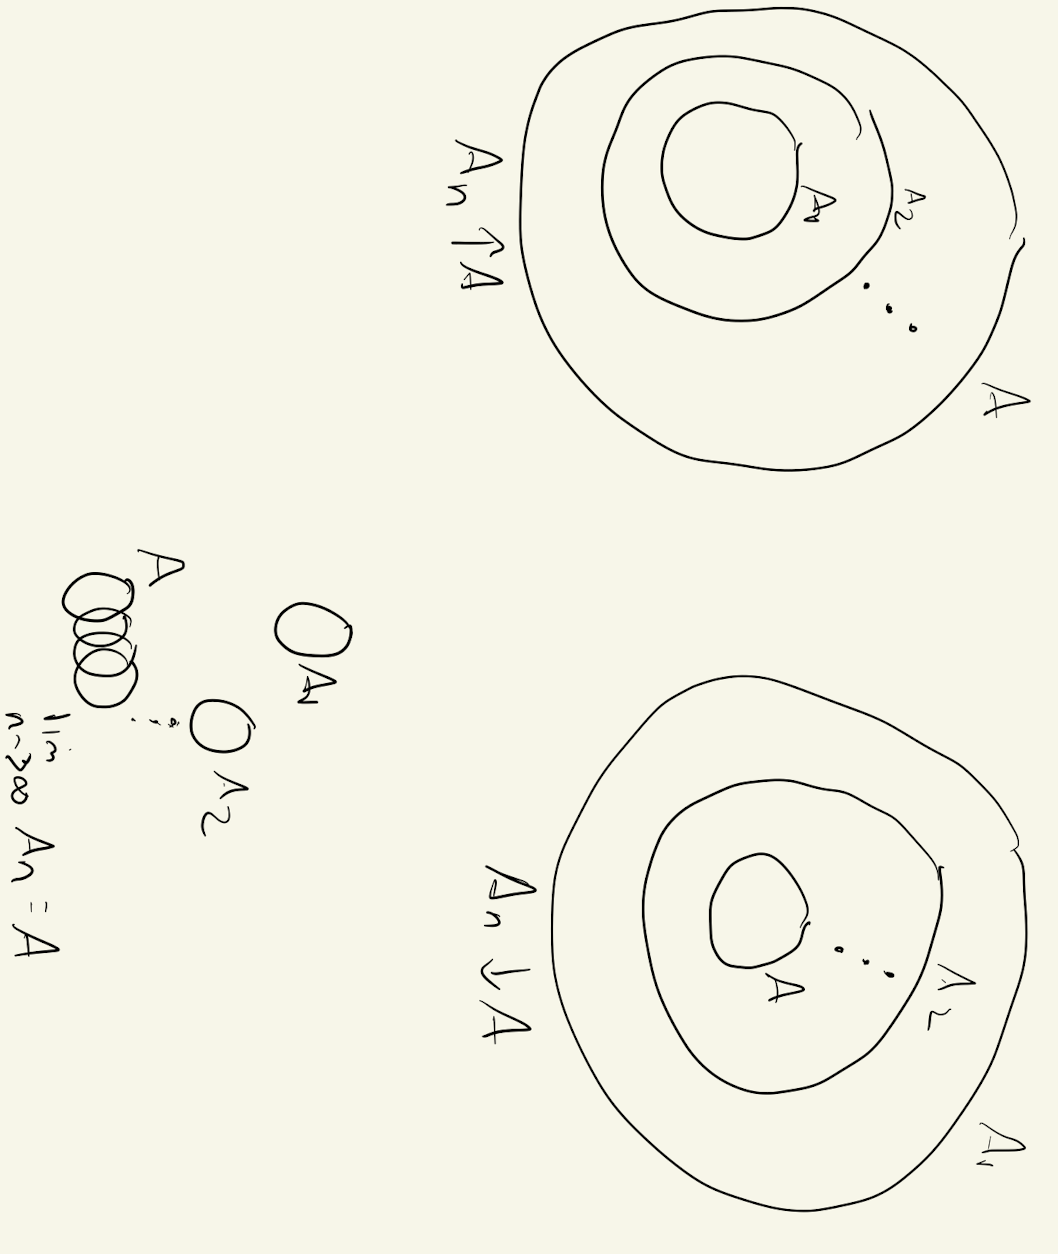 A₁
A₂
A
Aₙ ↑ A
A
A₂
A₁
Aₙ ↓ A
A₁
A₂
A
lim Aₙ = A
n→∞